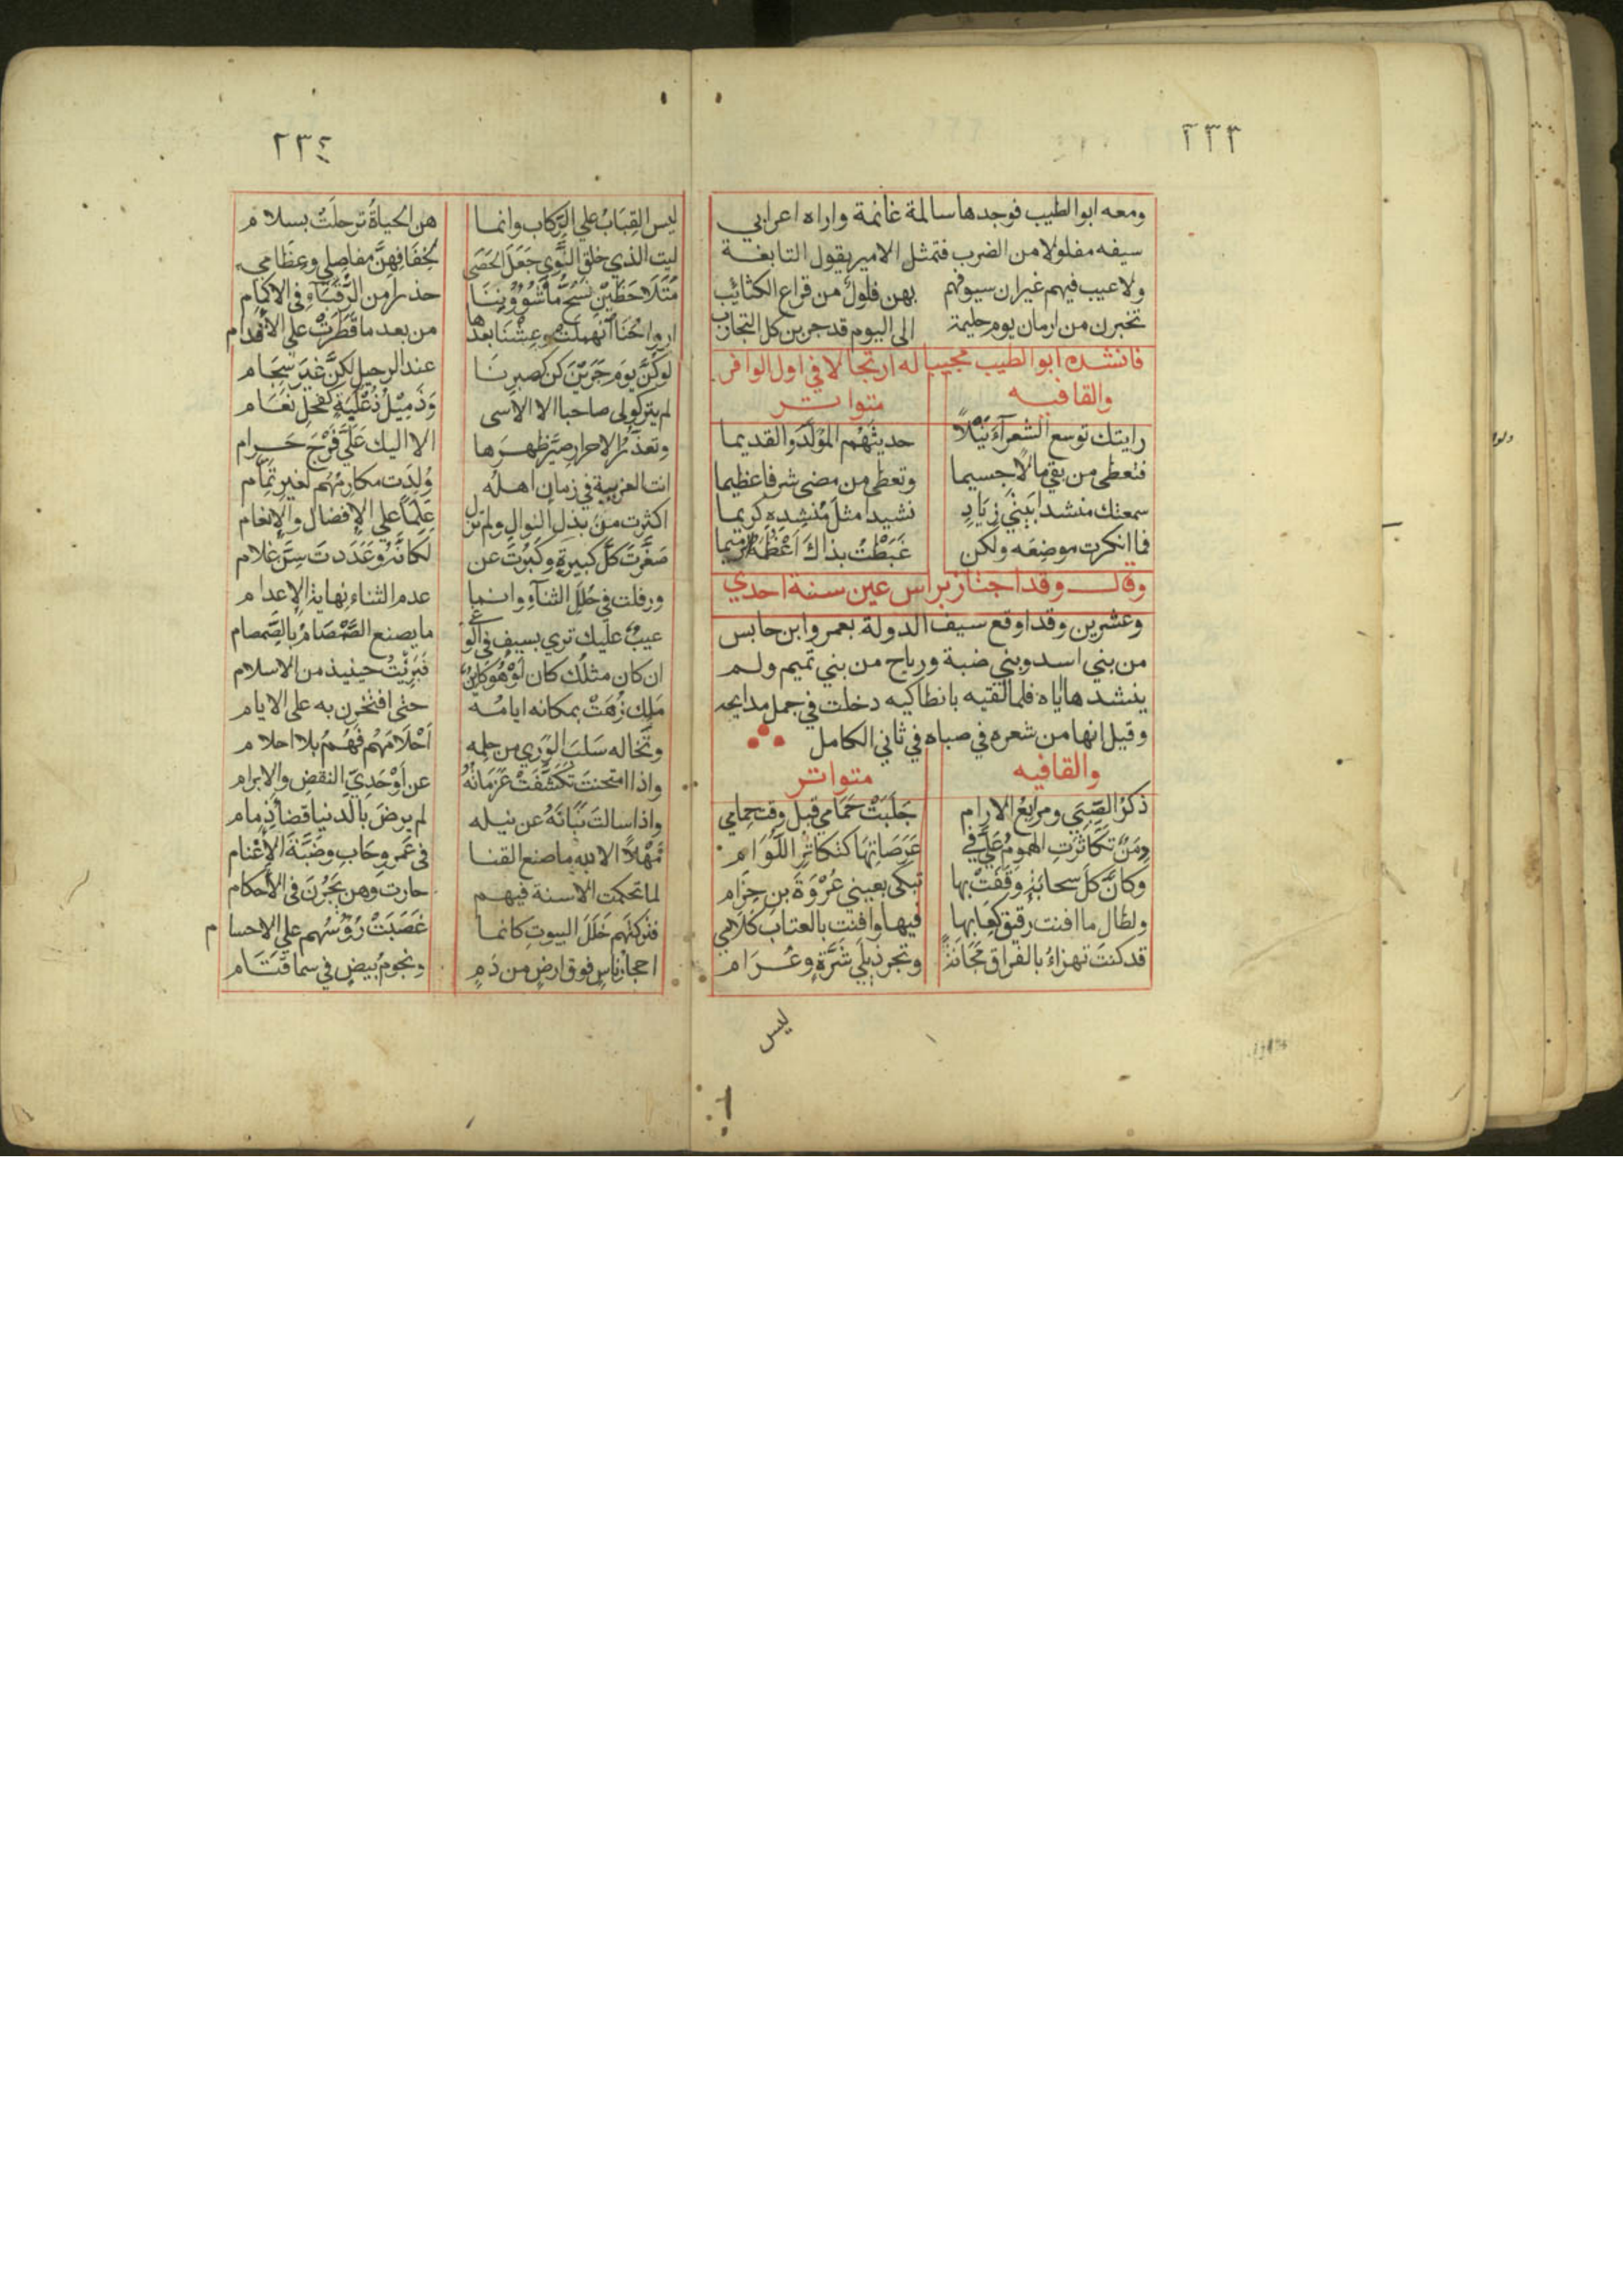 ٢٣٣
ومعه ابوالطيب فوجدها سالمة غانمة واراه اعرابي
سيفه مفلولا من الضرب فتمثل الامير بقول النابغة
ولا عيب فيهم غير ان سيوفهم بهن فلول من قراع الكتائب
تخبرن من ازمان يوم حليمة الى اليوم قد جربن كل التجارب
فانشده ابوالطيب مجيبا له ارتجالا في اول الوافر
والقافيه متواتر
رايتك توسع الشعرآء نَيْلاً حديثَهُم المُولَّدَ والقديما
فتعطى من بقى مالًا جسيما وتعطى من مضى شرفا عظيما
سمعتك منشدا بَيتَي زِيَادٍ نشيدا مثلَ مُنشِدِهِ كريما
فما انكرت موضِعَه ولكن غَبَطْتُ بذاكَ اَعْظُمَهُ الرميما
وقال وقد اجتاز براس عين سنة احدي
وعشرين وقد اوقع سيف الدولة بعمرو ابن حابس
من بني اسد وبني ضبة ورياح من بني تميم ولم
ينشدها اياه فلما لقيه بانطاكيه دخلت في جمل مدايحه
وقيل انها من شعره في صباه في ثاني الكامل
والقافيه متواتر
ذكرُ الصِّبَي ومرابعُ الارام جَلَبَتْ حَمَامي قبل وقت حِمامي
دِمَنٌ تَكَاثَرَتِ الهمومُ عَلَيَّ في عَرَصَاتِهَا كتكاثُرِ اللُّوَّام
وكانَّ كلَّ سحابَةٍ وَقَفَتْ بها تبكى بعيني عُرْوَةَ بنِ حِزَام
ولطال ما افنت رِيقَ كَعَابِها فيها وافنت بالعتاب كَلامي
قد كنتَ تهزاءُ بالفراق مَجَانَةً وتجر ذيلَي شَرَّةٍ وعُرَام
ليس
٢٣٤
ليس القِبَابُ علي الرِّكاب وانما هن الحياةُ ترحلَتْ بسلام
ليت الذي خلق النَّوي جَعَلَ الحَصَى لِخِفَافِهِنَّ مفاصِلي وعِظَامي
مُتَلَاحَظَيْنِ نَسُحُّ مآ شُؤُونِنَا حذرا من الرُّقَبَآءِ في الاكمام
ارواحُنَا انهملت وعِشْنَا بعدها من بعد ما قَطَرَتْ على الاَقْدام
لو كُنَّ يوم جَرَيْنَ كن كصبرنَا عند الرحيل لكنَّ غَيْرَ سِجَام
لم يتركولى صاحبا الا الاسى وَذَمِيْلَ ذِعْلِبَةٍ كفحل نَعَام
وتعذُّرُ الاحرار صيَّر ظهرَها الا اليك عَلَيَّ فَرْجَ حَرام
انت الغريبة في زمان اهلُه وُلِدَت مكارِمُهُم لغير تَمَام
اكثرت من بَذْلِ النوال ولم تزل عَلَمًا علي الاِفضال والاِنعام
صَغَّرْتَ كلَّ كبيرةٍ وكَبُرْتَ عن لَكَانَّهُ وعَدَدتَ سِنَّ غلام
ورفلت في حُلَلِ الثنآءِ وانما عدم الثناء نهاية الاِعدام
عيبٌ عليك تري بسيف في الوغي ما يصنع الصَّمْصَامُ بالصَّمصام
ان كان مثلُك كان لَوْ هُو كَاينٌ فَبَرِيْتُ حينيذ من الاسلام
مَلِكٌ زُهَتْ بمكانه ايامُه حتى افتخرن به على الايام
وتَخاله سَلَبَ الوَرِي من حِلمه اَحْلامَهُم فَهُمُ بلا احلام
واذا امتحنتَ تكَشَّفَتْ عَزَمَاتُهُ عن اَوْحَدِيِّ النقضِ والابرام
واذا سالتَ بَنَانَهُ عن نيله لم يرضَ بالدنيا قضآ ذِمام
مَهْلًا الا لله ما صنع القنا في عَمرِو حَابِ وضَبَّةَ الاَغْتام
لما تحكمت الاسنة فيهم حارت وهن يَجُرْنَ في الاحكام
فتركتَهم خَلَلَ البيوتِ كانما غَضَبَتْ رُؤُسُهم علي الاحسام
احجارُ ناسٍ فوق ارضٍ من دَمٍ ونجومُ بيضٍ في سما قَتَام